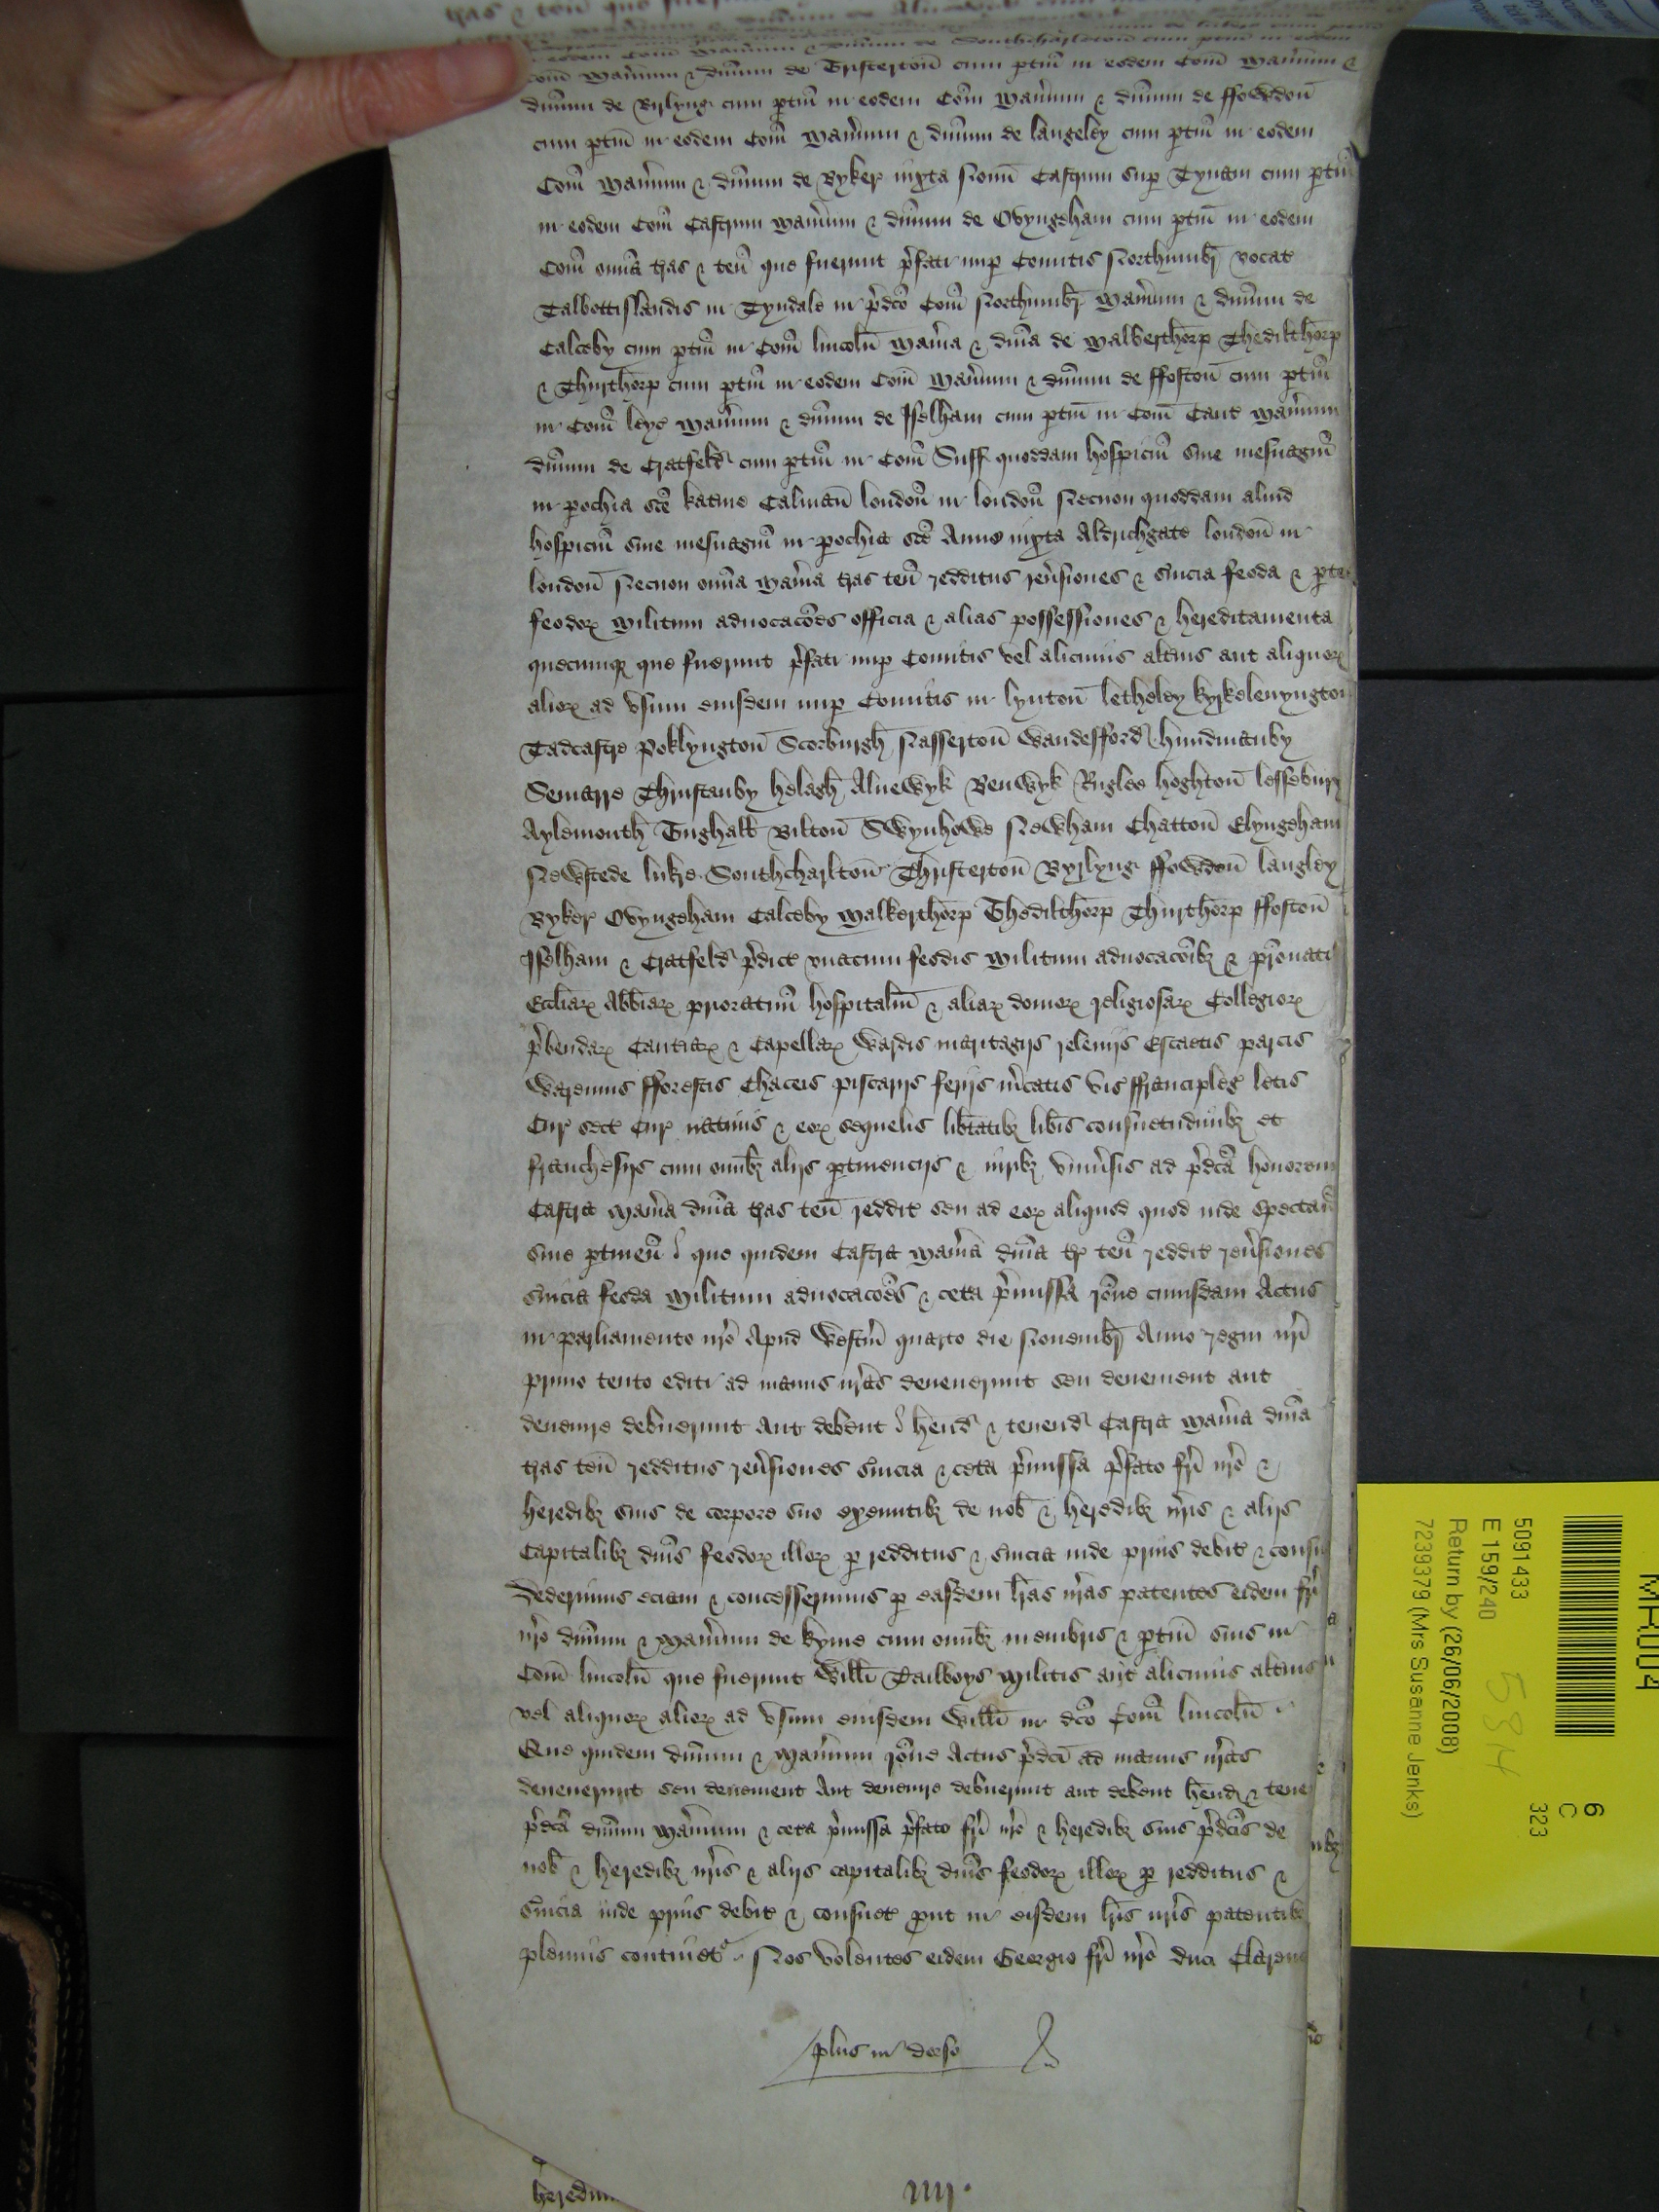 eodem Com̄ Man̄ium & dn̄ium de Southcharleton̄ cum ptin̄ in eodem
Com̄ Man̄ium & dn̄ium de Tristerton̄ cum ptin̄ in eodem Com̄ Man̄ium &
dn̄ium de Byrlyng cum ptin̄ in eodem Com̄ Man̄ium & dn̄ium de ffowdon̄
cum ptin̄ in eodem Com̄ Man̄ium & dn̄ium de Langeley cum ptin̄ in eodem
Com̄ Man̄ium & dn̄ium de Byker iuxta Novū Castrum sup Tynam cum ptin̄
in eodem Com̄ Castrum Man̄ium & dn̄ium de Ovyngeham cum ptin̄ in eodem
Com̄ om̄ia t̄ras & ten̄ que fuerunt p̄fati nup Comitis Northumbr̄ vocat
Talbottislandis in Tyndale in p̄dc̄o Com̄ Northumbr̄ Man̄ium & dn̄ium de
Calceby cum ptin̄ in Com̄ Lincoln̄ Man̄ia & dn̄ia de Walberthorp Thedilthorp
& Thirthorp cum ptin̄ in eodem Com̄ Man̄ium & dn̄ium de ffoston̄ cum ptin̄
in Com̄ Leyc Man̄ium & dn̄ium de Iselham cum ptin̄ in Com̄ Cant Man̄ium
dn̄ium de Cratfeld cum ptin̄ in Com̄ Suff quoddam hospiciū siue mesuagiū
in pochia sc̄e Katine Colman̄ london̄ in london̄ Necnon quoddam aliud
hospiciū siue mesuagiū in pochia sc̄e Anne iuxta Aldrichgate london̄ in
london̄ Necnon om̄ia Man̄ia t̄ras ten̄ redditus reu̓siones & s̄uicia feoda & pte
feodoꝝ Militum aduocac̄oes officia & alias possessiones & hereditamenta
quecumqꝫ que fuerunt p̄fati nup Comitis vel alicuius alt̓ius aut aliquoꝝ
alioꝝ ad vsum eiusdem nup Comitis in lynton̄ letheley kyrkelevyngton
Tadcastre Poklyngton̄ Scorburgh Nasserton̄ Wandesford hundmanby
Semarre Thrustanby helagh Alnewyk Denwyk Ruglee hoghton̄ lessebury
Aylemouth Tughall Bilton̄ Swynhowe Newham Chatton̄ Elyngeham
Newstede luk̓e Southcharlton̄ Thristerton̄ Byrlyng ffowdon̄ langley
Byker Ovyngeham Calceby Walkerthorp Thedilthorp Thirthorp ffoston̄
Iselham & Cratfeld p̄dict vnacum feodis Militum aduocac̄oibꝫ & pronati
Eccliaꝝ Abbiaꝝ prioratuū hospitaliū & aliaꝝ domoꝝ religiosaꝝ Collegioꝝ
p̄bendaꝝ Cantiaꝝ & Capellaꝝ Wardis maritagijs relevijs Escaetis parcis
Warennis fforestis Chaceis piscarijs ferijs m̄catis vis ffrancipleg letis
Cur sect Cur nativis & eoꝝ sequelis lib̄tatibꝫ lib̄is consuetudinibꝫ et
franchesijs cum om̄ibꝫ alijs ptinencijs & iuribꝫ vniu̓sis ad p̄dc̄a honorem
Castra Man̄ia dn̄ia t̄ras ten̄ reddit seu ad eoꝝ aliquod quod inde spectan̄
siue ptinen̄ que quidem Castra Man̄ia dn̄ia t̄r ten̄ reddit reu̓siones
s̄uicia feoda Militum aduocac̄oes & cet̓a p̄missa rōne cuiusdam Actus
in parliamento nr̄o Apud Westm̄ quarto die Novembr̄ Anno regni nr̄i
primo tento editi ad manus nr̄as devenerunt seu devenient aut
devenire debuerunt Aut debent hend & tenend Castra Man̄ia dn̄ia
t̄ras ten̄ redditus reu̓siones s̄uicia & cet̓a p̄missa p̄fato fr̄i nr̄o &
heredibꝫ suis de corpore suo exeuntibꝫ de nob̄ & heredibꝫ nr̄is & alijs
Capitalibꝫ dn̄is feodoꝝ illoꝝ p redditus & s̄uicia inde prius debit & consu
Dederimus eciam & concesserimus p easdem l̄ras nr̄as patentes eidem fr̄i
nr̄o dn̄ium & Man̄ium de kyme cum om̄ibꝫ membris & ptin̄ suis in
Com̄ lincoln̄ que fuerunt Will̄i Tailboys Militis aut alicuius alt̓ius
vel aliquoꝝ alioꝝ ad vsum eiusdem Will̄i in dc̄o Com̄ lincoln̄
Que quidem dn̄ium & Man̄ium rōne Actus p̄dc̄i ad manus nr̄as
devenerunt seu devenient Aut devenire debuerunt aut debent hend & tene
p̄dc̄a dn̄ium Man̄ium & cet̓a p̄missa p̄fato fr̄i nr̄o & heredibꝫ suis p̄dc̄is de
nob̄ & heredibꝫ nr̄is & alijs capitalibꝫ dn̄is feodoꝝ illoꝝ p redditus &
s̄uicia inde prius debit & consuet put in eisdem l̄ris nr̄is patentibꝫ
plenius continet̓ Nos volentes eidem Georgio fr̄i nr̄o duci Clarenc
plus in dorso
heredum
iiij
MR004
6
C
323
5091433
E 159/240
5814
Return by (26/06/2008)
7239379 (Mrs Susanne Jenks)